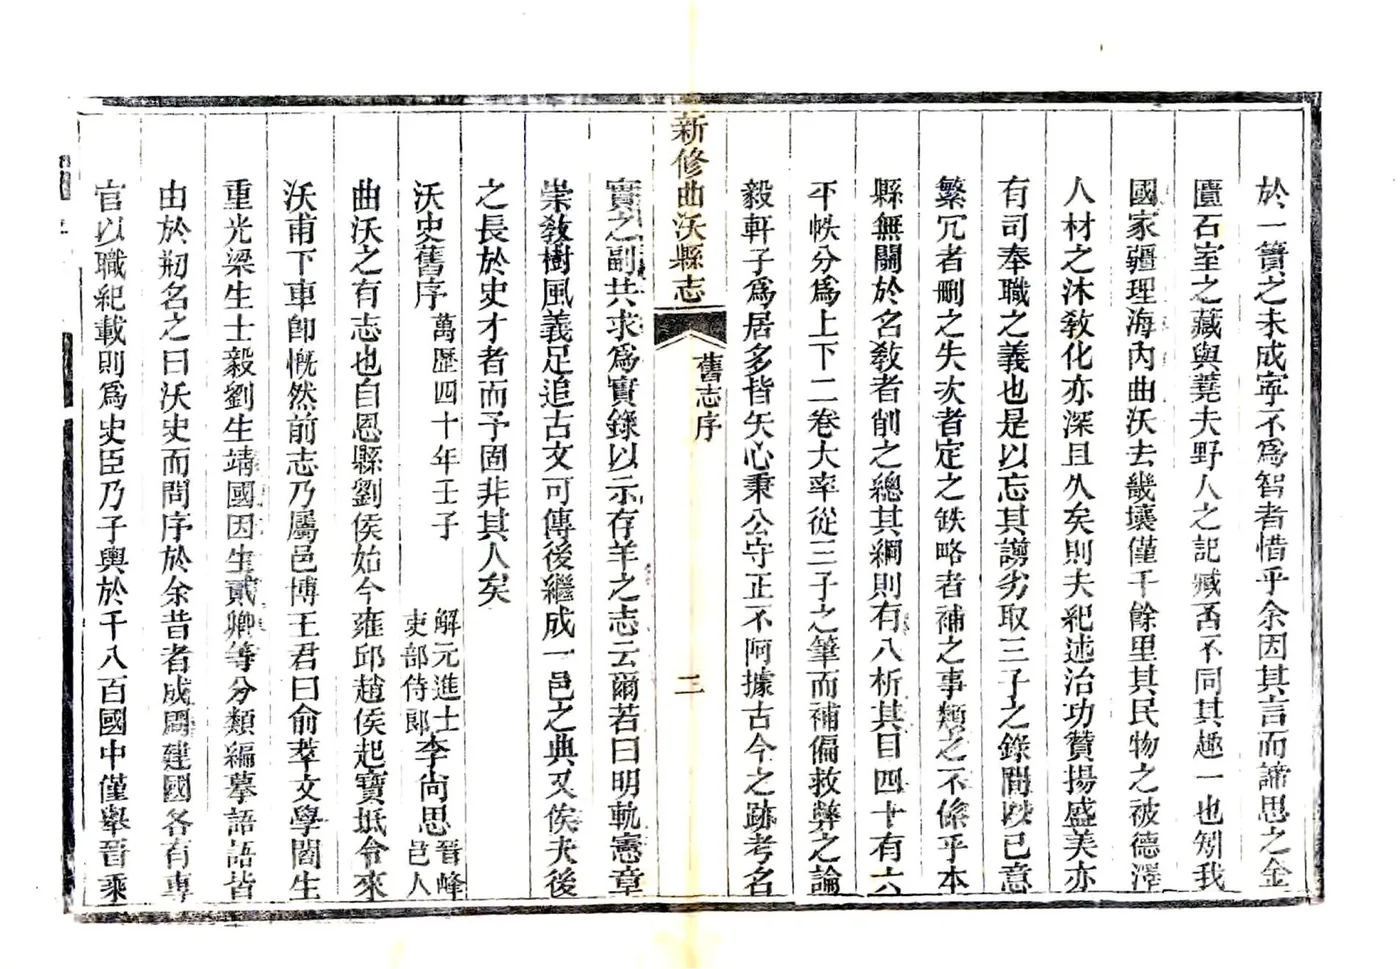 於一簣之未成寧不爲智者惜乎余因其言而諦思之金
匱石室之藏與蕘夫野人之記臧否不同其趣一也矧我
國家疆理海內曲沃去畿壤僅千餘里其民物之被德澤
人材之沐教化亦深且久矣則夫紀述治功贊揚盛美亦
有司奉職之義也是以忘其謭劣取三子之錄閒以已意
繁冗者刪之失次者定之缺略者補之事類之不係乎本
縣無關於名教者削之總其綱則有八析其目四十有六
平帙分爲上下二卷大率從三子之筆而補偏救弊之論
毅軒子爲居多皆矢心秉公守正不阿據古今之跡考名
新修曲沃縣志
舊志序
二
實之副共求爲實錄以示存羊之志云爾若曰明軌憲章
崇教樹風義足追古文可傳後繼成一邑之典又俟夫後
之長於史才者而予固非其人矣
沃史舊序 萬歷四十年壬子 解元進士吏部侍郎 李尚思 晉峰邑人
曲沃之有志也自恩縣劉侯始今雍邱趙侯起寶坻令來
沃甫下車卽慨然前志乃屬邑博王君曰俞莘文學閻生
重光梁生士毅劉生靖國因生貳卿等分類編摹語語皆
由於剏名之曰沃史而問序於余昔者成周建國各有專
官以職紀載則爲史臣乃子輿於千八百國中僅舉晉乘